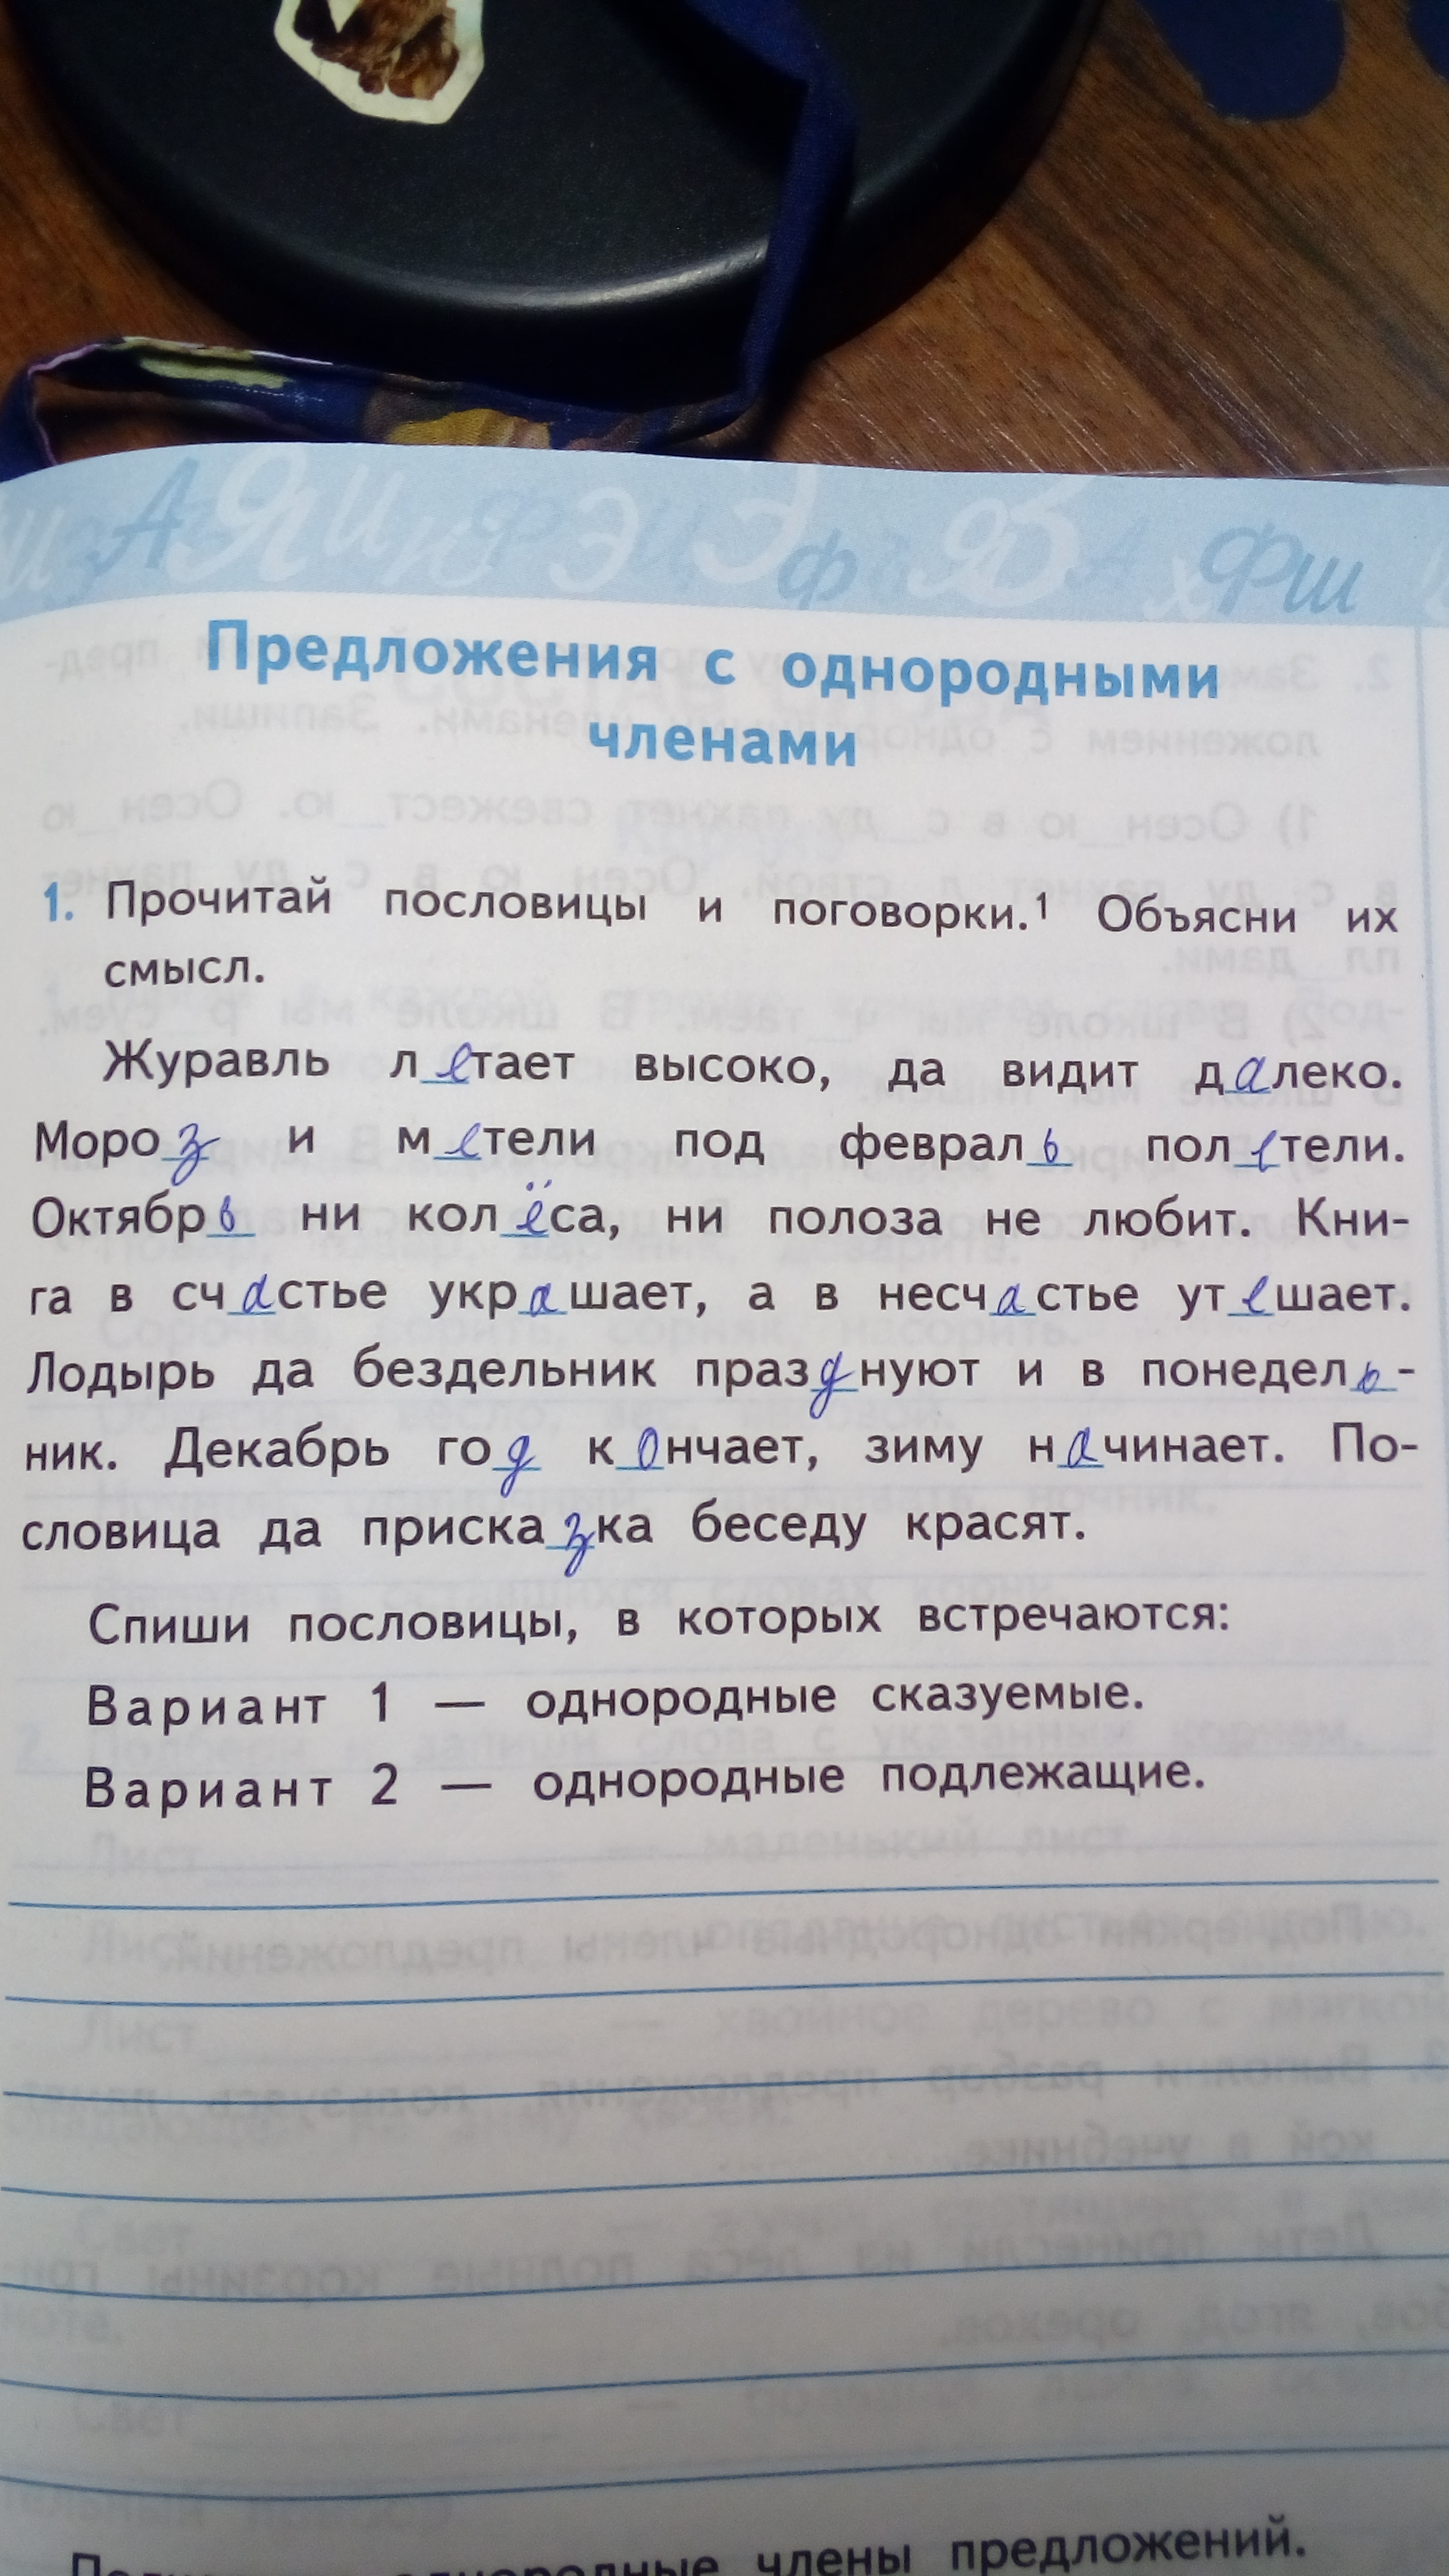 Предложения с однородными
членами
1. Прочитай пословицы и поговорки.¹ Объясни их
смысл.
Журавль летает высоко, да видит далеко.
Мороз и метели под февраль полетели.
Октябрь ни колёса, ни полоза не любит. Кни-
га в счастье украшает, а в несчастье утешает.
Лодырь да бездельник празднуют и в понедель-
ник. Декабрь год кончает, зиму начинает. По-
словица да присказка беседу красят.
Спиши пословицы, в которых встречаются:
Вариант 1 — однородные сказуемые.
Вариант 2 — однородные подлежащие.
однородные члены предложений.